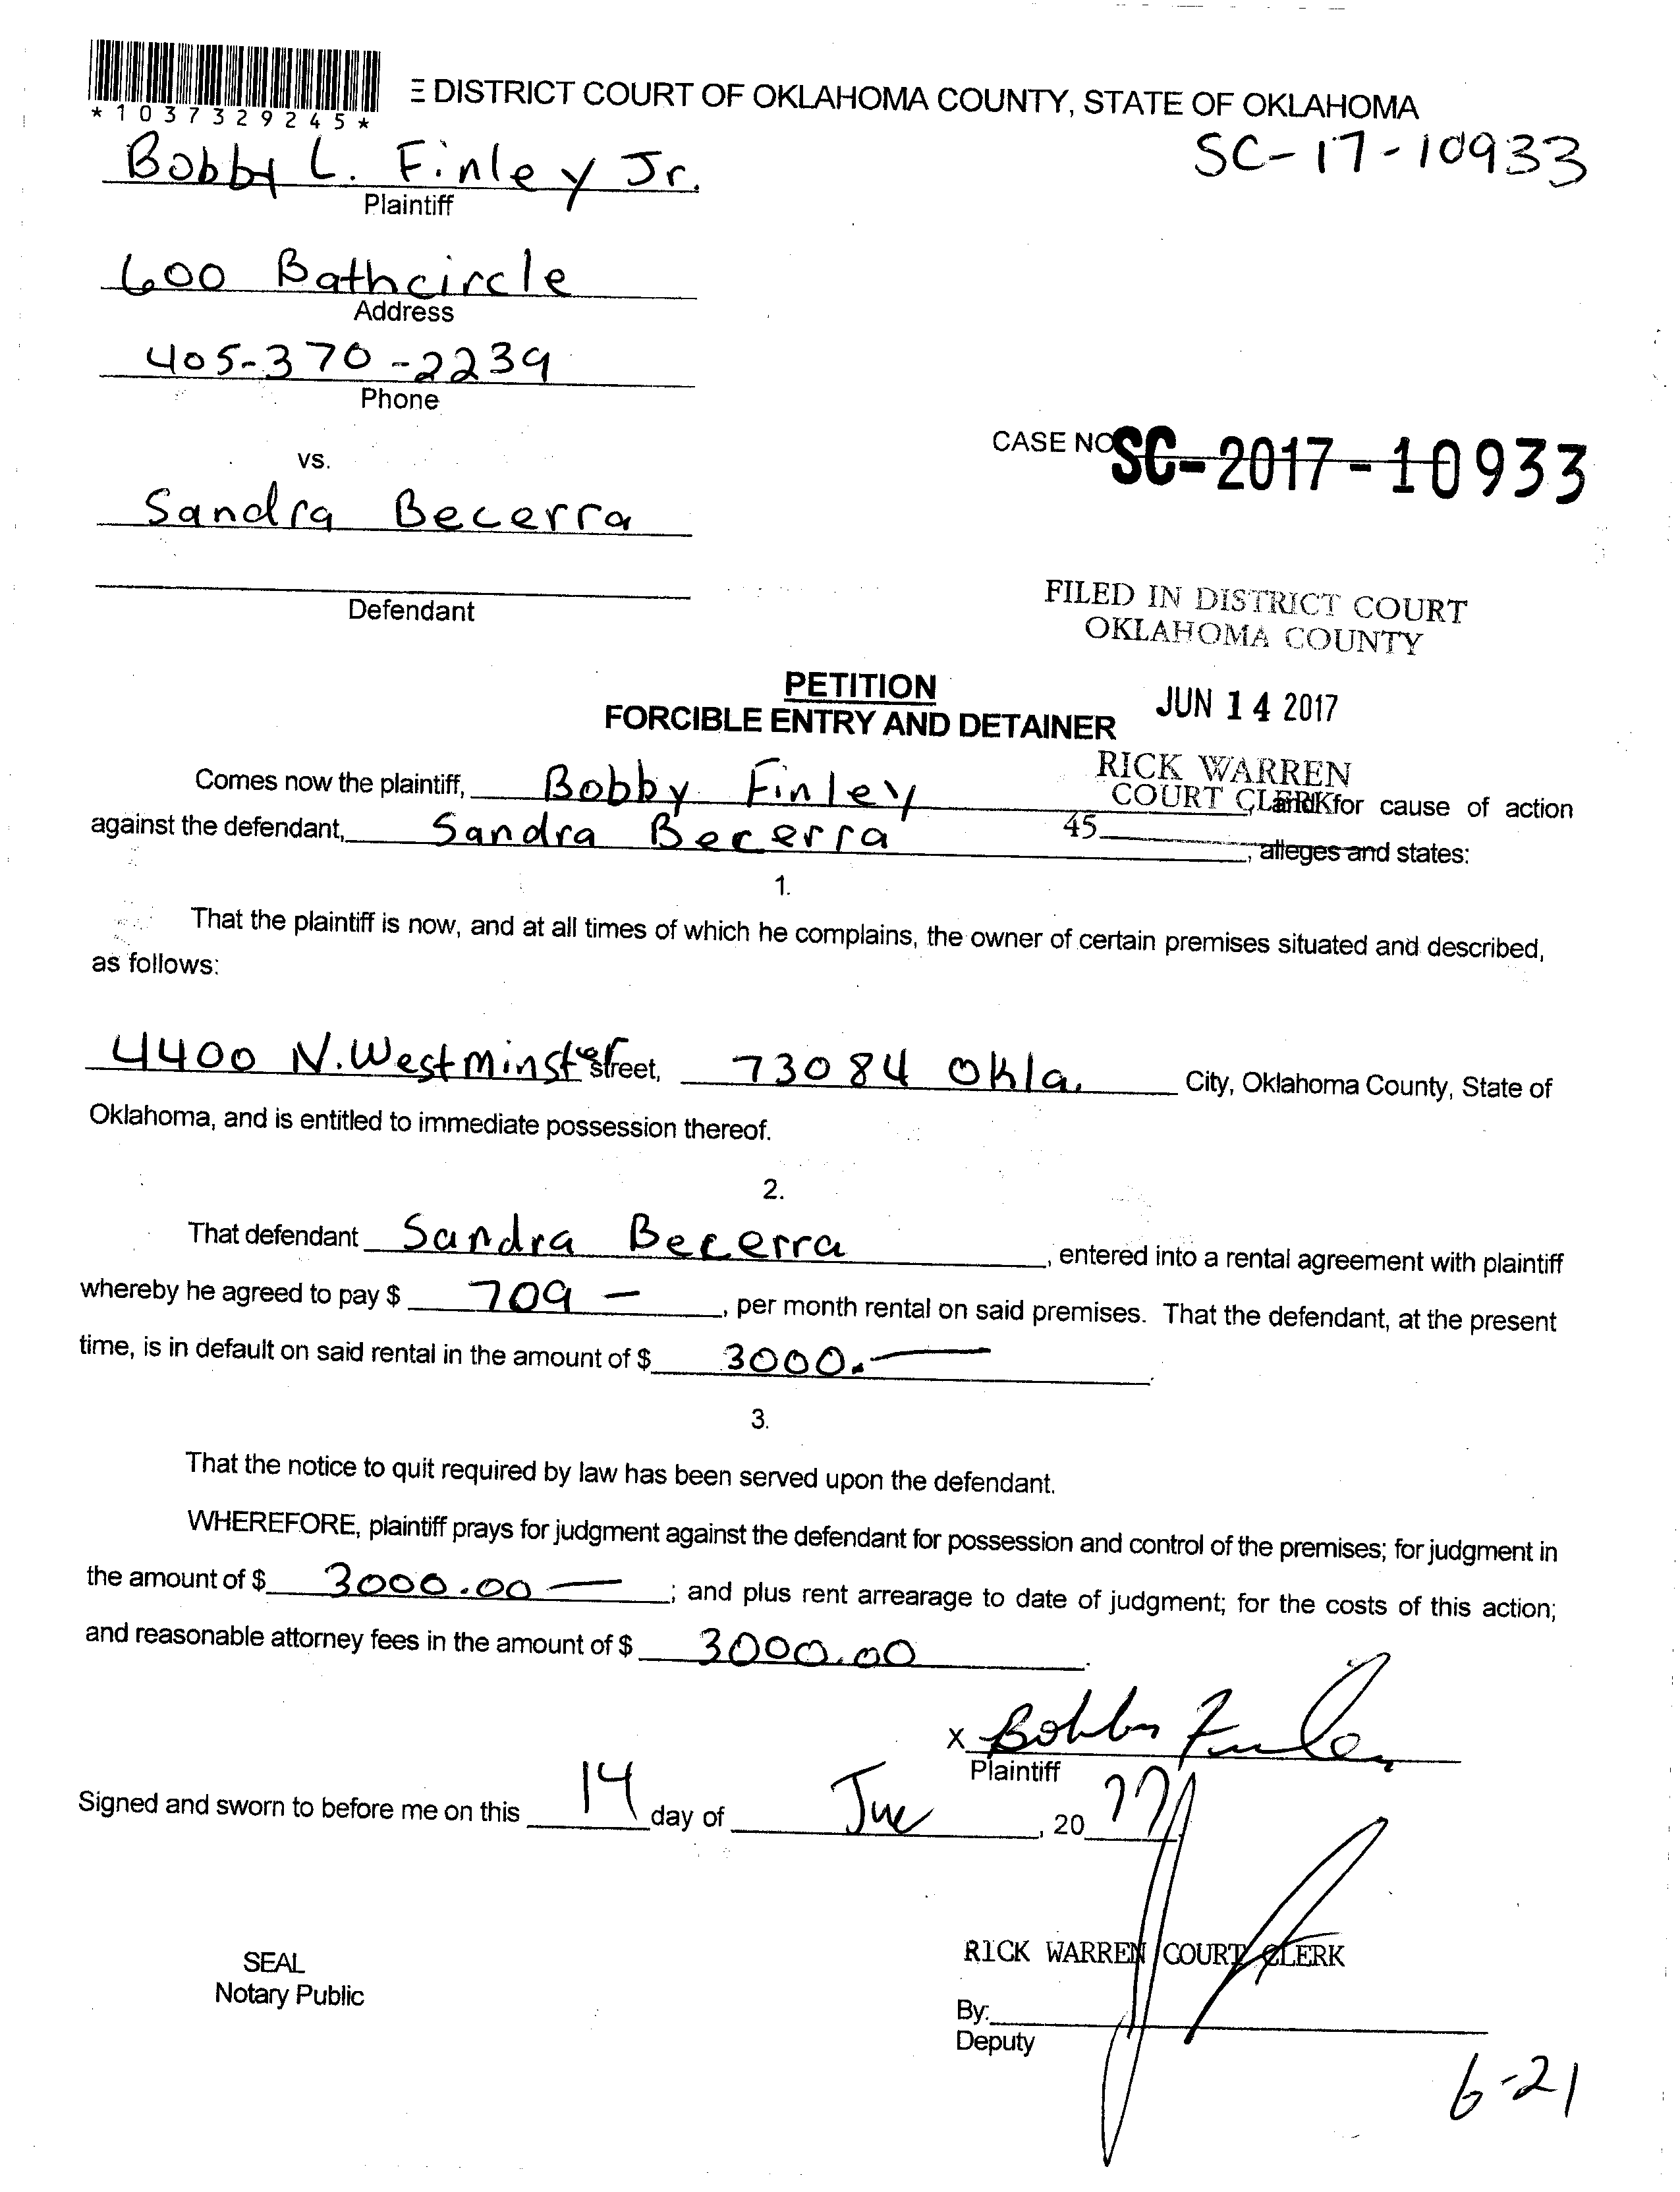 *1037329245*
E DISTRICT COURT OF OKLAHOMA COUNTY, STATE OF OKLAHOMA
SC-17-10933
Bobby L. Finley Jr.
Plaintiff
600 Bathcircle
Address
405-370-2239
Phone
CASE NO SC-2017-10933
vs.
Sandra Becerra
Defendant
FILED IN DISTRICT COURT
OKLAHOMA COUNTY
PETITION
FORCIBLE ENTRY AND DETAINER
JUN 14 2017
RICK WARREN
COURT CLERK
45
Comes now the plaintiff, Bobby Finley, and for cause of action
against the defendant, Sandra Becerra, alleges and states:
1.
That the plaintiff is now, and at all times of which he complains, the owner of certain premises situated and described,
as follows:
4400 N. Westminster Street, 73084 Okla. City, Oklahoma County, State of
Oklahoma, and is entitled to immediate possession thereof.
2.
That defendant Sandra Becerra, entered into a rental agreement with plaintiff
whereby he agreed to pay $ 709 —, per month rental on said premises. That the defendant, at the present
time, is in default on said rental in the amount of $ 3000.—.
3.
That the notice to quit required by law has been served upon the defendant.
WHEREFORE, plaintiff prays for judgment against the defendant for possession and control of the premises; for judgment in
the amount of $ 3000.00 —; and plus rent arrearage to date of judgment; for the costs of this action;
and reasonable attorney fees in the amount of $ 3000.00.
X Bobby Finley
Plaintiff
Signed and sworn to before me on this 14 day of Jue, 20 17
RICK WARREN COURT CLERK
SEAL
Notary Public
By:
Deputy
6-21